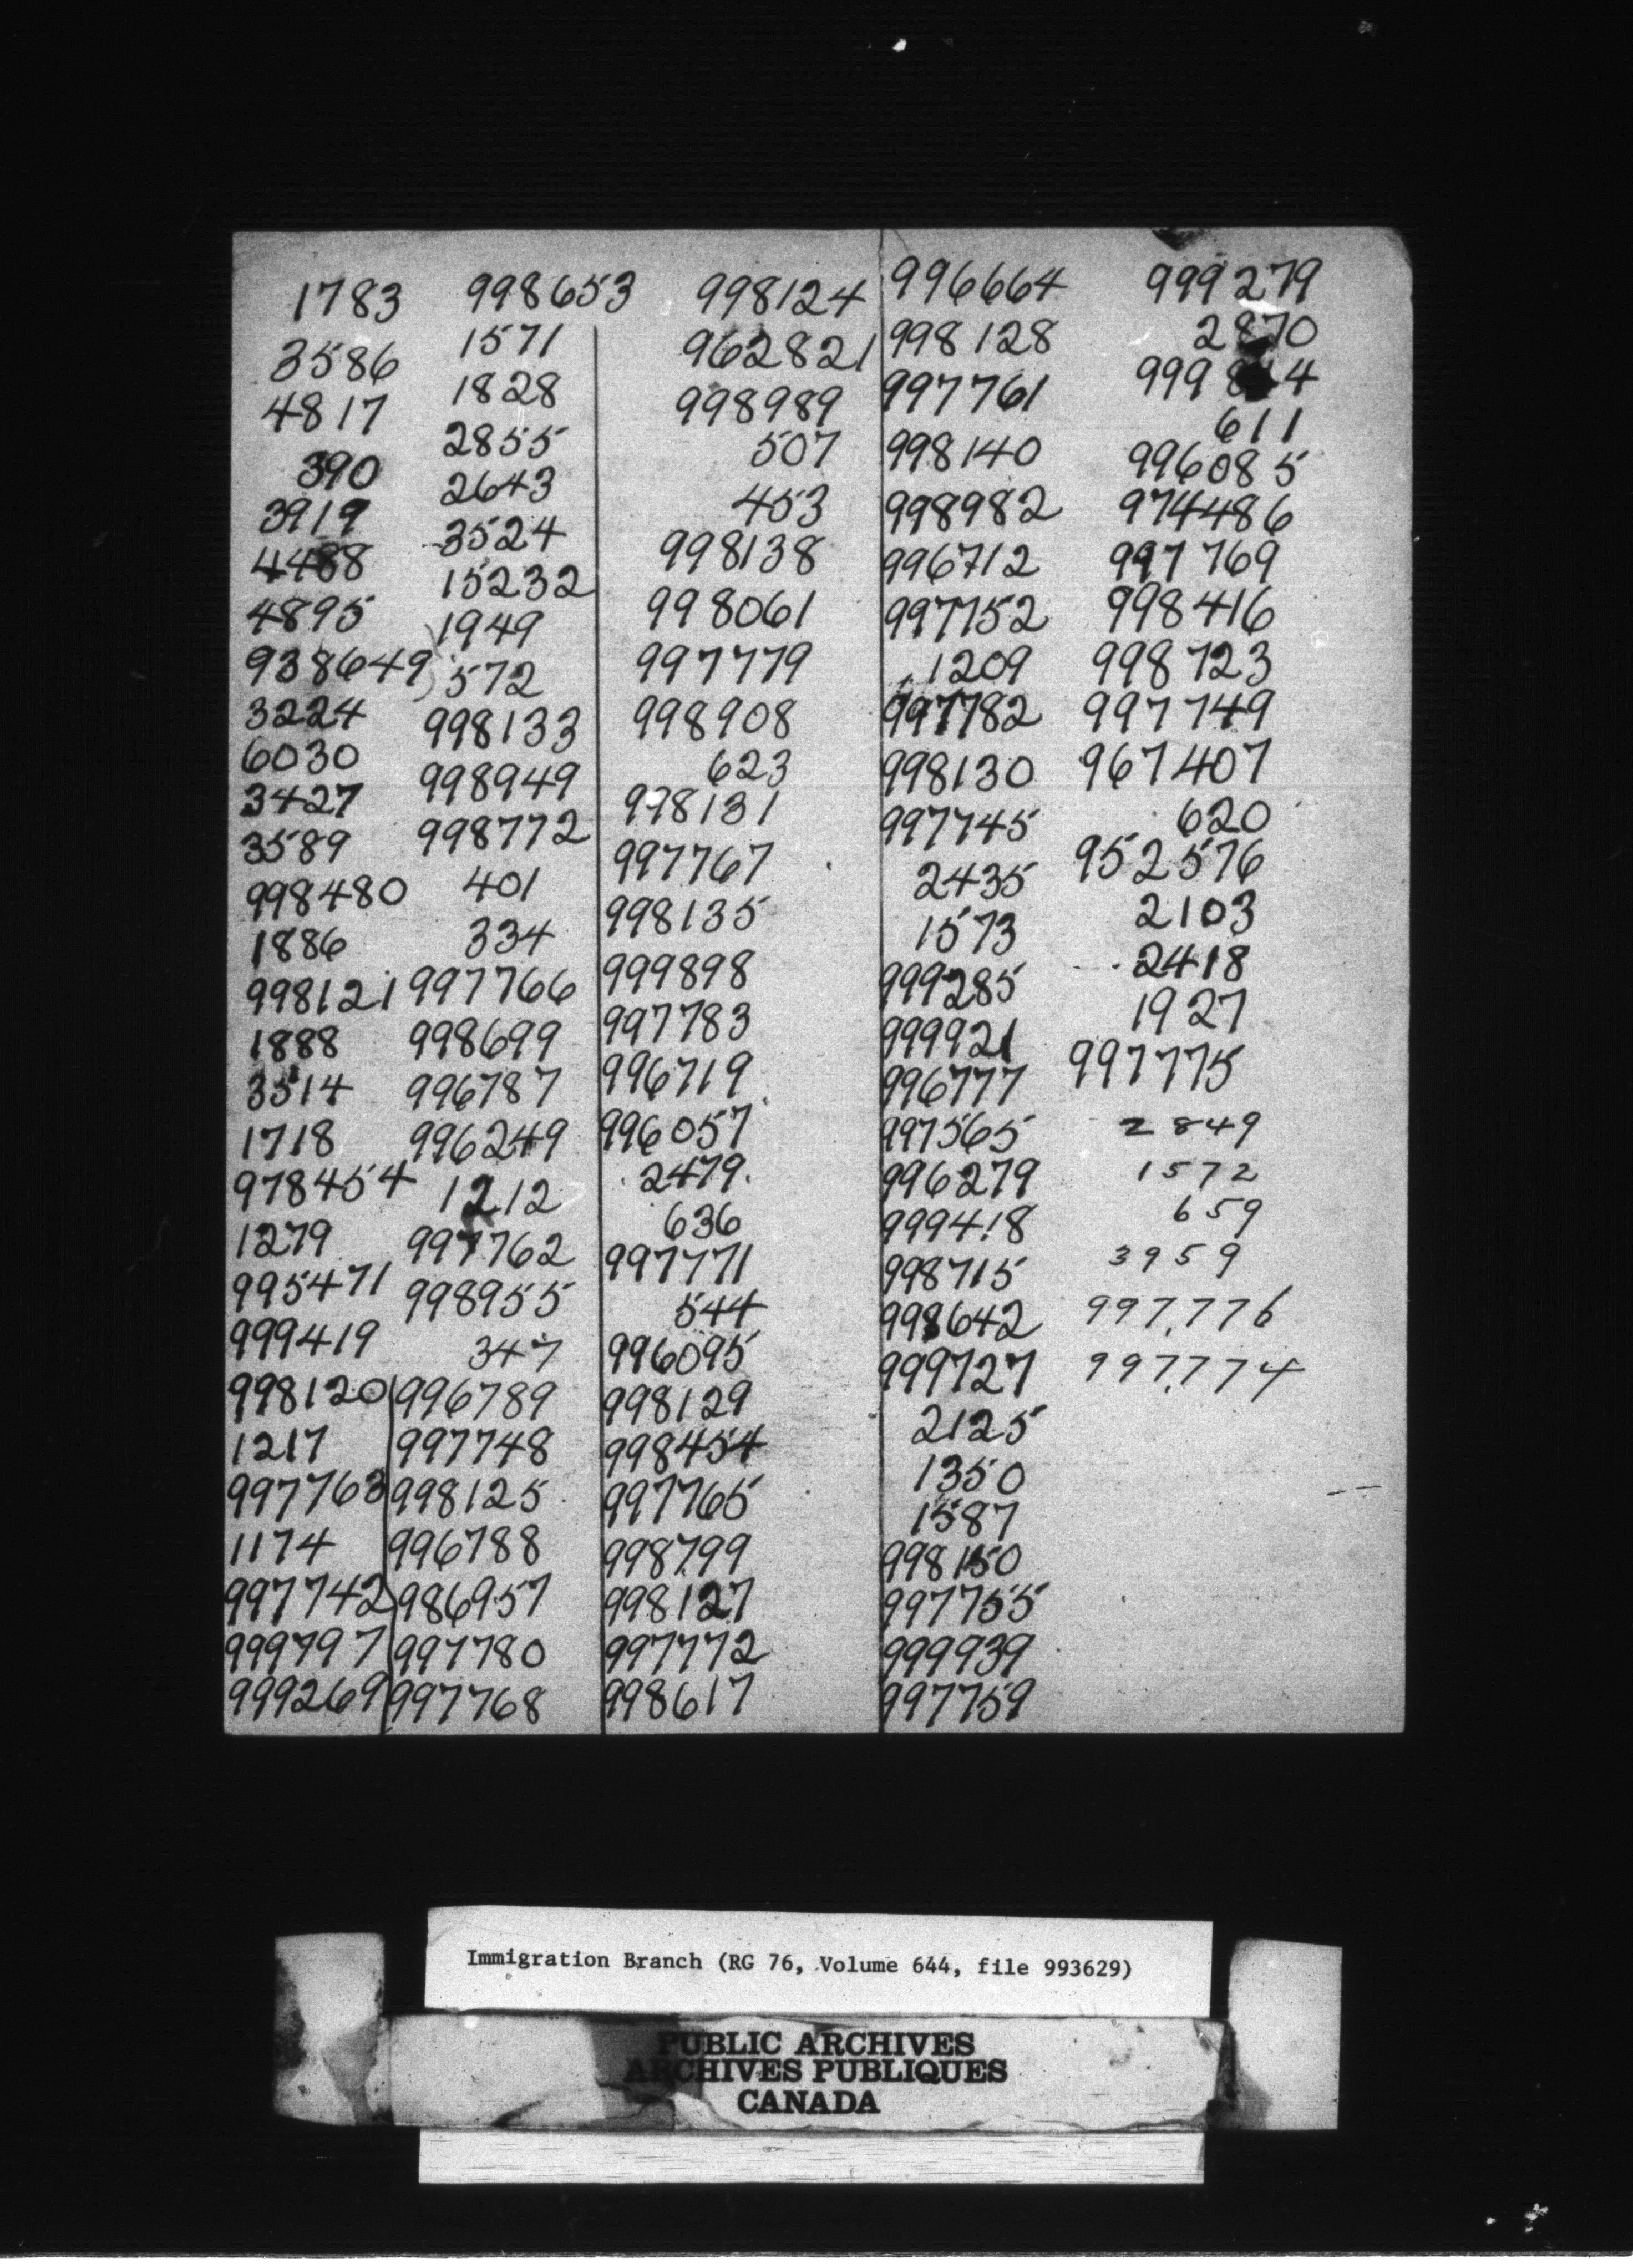 1783
3586
4817
390
3919
4488
4895
938649
3224
6030
3427
3589
998480
1886
998121
1888
3514
1718
978454
1279
995471
999419
998120
1217
997763
1174
997742
999797
999269
998653
1571
1828
2855
2643
3524
15232
1949
572
998133
998949
998772
401
334
997766
998699
996787
996249
1212
997762
998955
347
996789
997748
998125
996788
986957
997780
997768
998124
962821
998989
507
453
998138
998061
997779
998908
623
998131
997767
998135
999898
997783
996719
996057
2479
636
997771
544
996095
998129
998454
997765
998799
998127
997772
998617
996664
998128
997761
998140
998982
996712
997752
1209
997782
998130
997745
2435
1573
999285
999921
996777
997565
996279
999418
998715
998642
999727
2125
1350
1587
998150
997755
999939
997759
999279
2870
611
996085
974486
997769
998416
998723
997749
967407
620
952576
2103
2418
1927
997775
2849
1572
659
3959
997,776
997,774
Immigration Branch (RG 76, Volume 644, file 993629)
PUBLIC ARCHIVES
ARCHIVES PUBLIQUES
CANADA